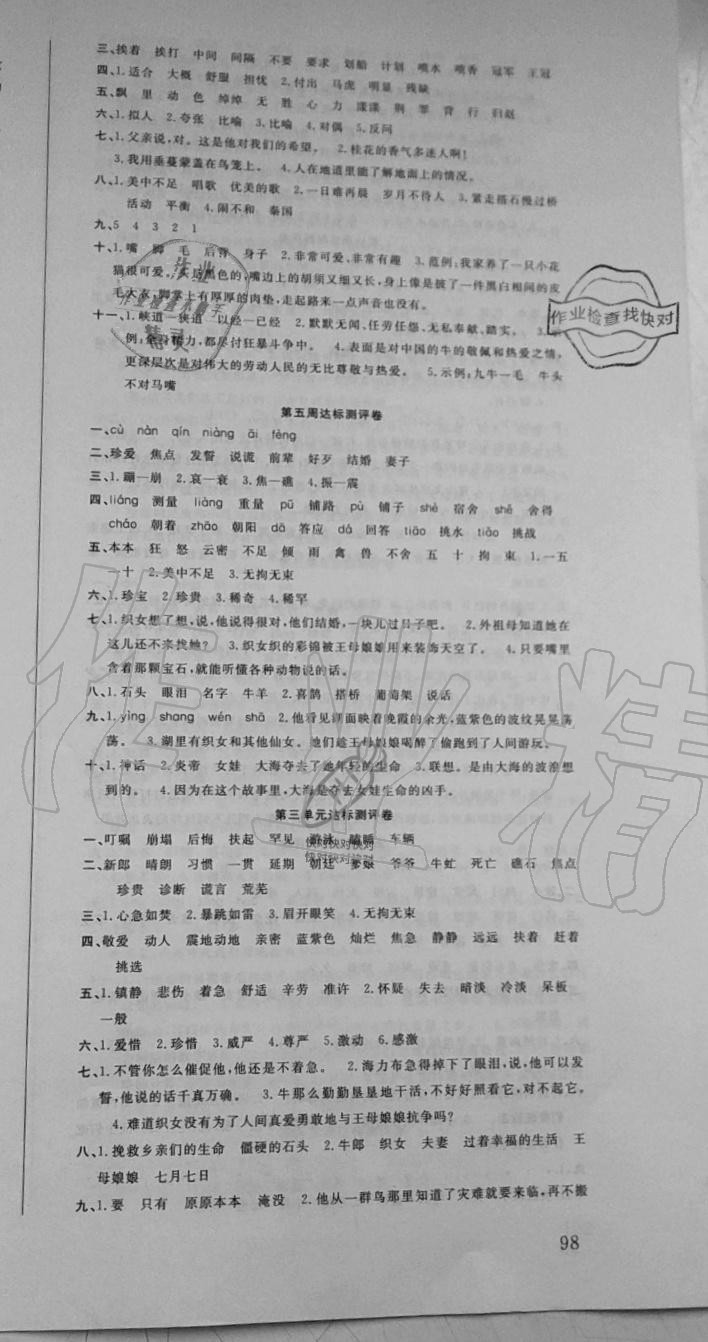 三、挨着 挨打 中间 间隔 不要 要求 划船 计划 喷水 喷香 冠军 王冠
四、1.适合 大概 舒服 担忧 2.付出 马虎 明显 残缺
五、飘 里 动 色 绰绰 无 胜 心 力 谍谍 荆 罪 背 行 归赵
六、1.拟人 2.夸张 比喻 3.比喻 4.对偶 5.反问
七、1.父亲说,对。这是他对我们的希望。 2.桂花的香气多迷人啊!
3.我用垂蔓蒙盖在鸟笼上。 4.人在地道里能了解地面上的情况。
八、1.美中不足 唱歌 优美的歌 2.一日难再晨 岁月不待人 3.紧走搭石慢过桥
活动 平衡 4.闹不和 秦国
九、5 4 3 2 1
十、1.嘴 脚 毛 后背 身子 2.非常可爱、非常有趣 3.范例:我家养了一只小花
猫很可爱。头后黑色的,嘴边上的胡须又细又长,身上像是披了一件黑白相间的皮
毛大衣;脚掌上有厚厚的肉垫,走起路来一点声音也没有。
十一、1.峡道—狭道 以经—已经 2.默默无闻、任劳任怨、无私奉献、踏实。 3.示
例:全 力,都尽付狂暴斗争中。 4.表面是对中国的牛的敬佩和热爱之情,
更深层次是对伟大的劳动人民的无比尊敬与热爱。 5.示例:九牛一毛 牛头
不对马嘴
第五周达标测评卷
一、cù nàn qín niàng āi fèng
二、珍爱 焦点 发誓 说谎 前辈 好歹 结婚 妻子
三、1.蹦—崩 2.哀—衰 3.焦—礁 4.振—震
四、liáng 测量 liàng 重量 pū 铺路 pù 铺子 shè 宿舍 shě 舍得
cháo 朝着 zhāo 朝阳 dā 答应 dá 回答 tiāo 挑水 tiǎo 挑战
五、本本 狂 怒 云密 不足 倾 雨 禽 兽 不舍 五 十 拘 束 1.一五
一十 2.美中不足 3.无拘无束
六、1.珍宝 2.珍贵 3.稀奇 4.稀罕
七、1.织女想了想,说,他说得很对,他们结婚,一块儿过日子吧。 2.外祖母知道她在
这儿还不来找她? 3.织女织的彩锦被王母娘娘用来装饰天空了。 4.只要嘴里
含着那颗宝石,就能听懂各种动物说的话。
八、1.石头 眼泪 名字 牛羊 2.喜鹊 搭桥 葡萄架 说话
九、1.yìng shang wén shā 2.他看见湖面映着晚霞的余光,蓝紫色的波纹晃晃荡
荡。 3.湖里有织女和其他仙女。她们趁王母娘娘喝醉了偷跑到了人间游玩。
十、1.神话 2.炎帝 女娃 大海夺去了她年轻的生命 3.联想。是由大海的波涛想
到的。 4.因为在这个故事里,大海是夺去女娃生命的凶手。
第三单元达标测评卷
一、叮嘱 崩塌 后悔 扶起 罕见 游泳 瞌睡 车辆
二、新郎 晴朗 习惯 一贯 延期 朝廷 爹娘 爷爷 牛虻 死亡 礁石 焦点
珍贵 诊断 谎言 荒芜
三、1.心急如焚 2.暴跳如雷 3.眉开眼笑 4.无拘无束
四、敬爱 动人 震地动地 亲密 蓝紫色 灿烂 焦急 静静 远远 扶着 赶着
挑选
五、1.镇静 悲伤 着急 舒适 辛劳 准许 2.怀疑 失去 暗淡 冷淡 呆板
一般
六、1.爱惜 2.珍惜 3.威严 4.尊严 5.激动 6.感激
七、1.不管你怎么催促他,他还是不着急。 2.海力布急得掉下了眼泪,说,我可以发
誓,他说的话千真万确。 3.牛那么勤勤恳恳地干活,不好好照看它,怎么行呢?
4.难道织女没有为了人间真爱勇敢地与王母娘娘抗争吗?
八、1.挽救乡亲们的生命 僵硬的石头 2.牛郎 织女 夫妻 过着幸福的生活 王
母娘娘 七月七日
九、1.要 只有 原原本本 淹没 2.他从一群鸟那里知道了灾难就要来临,再不搬
98
作业检查找快对
作业
作业检查小帮手
精灵
快对快对快对
快对快对快对
作业精